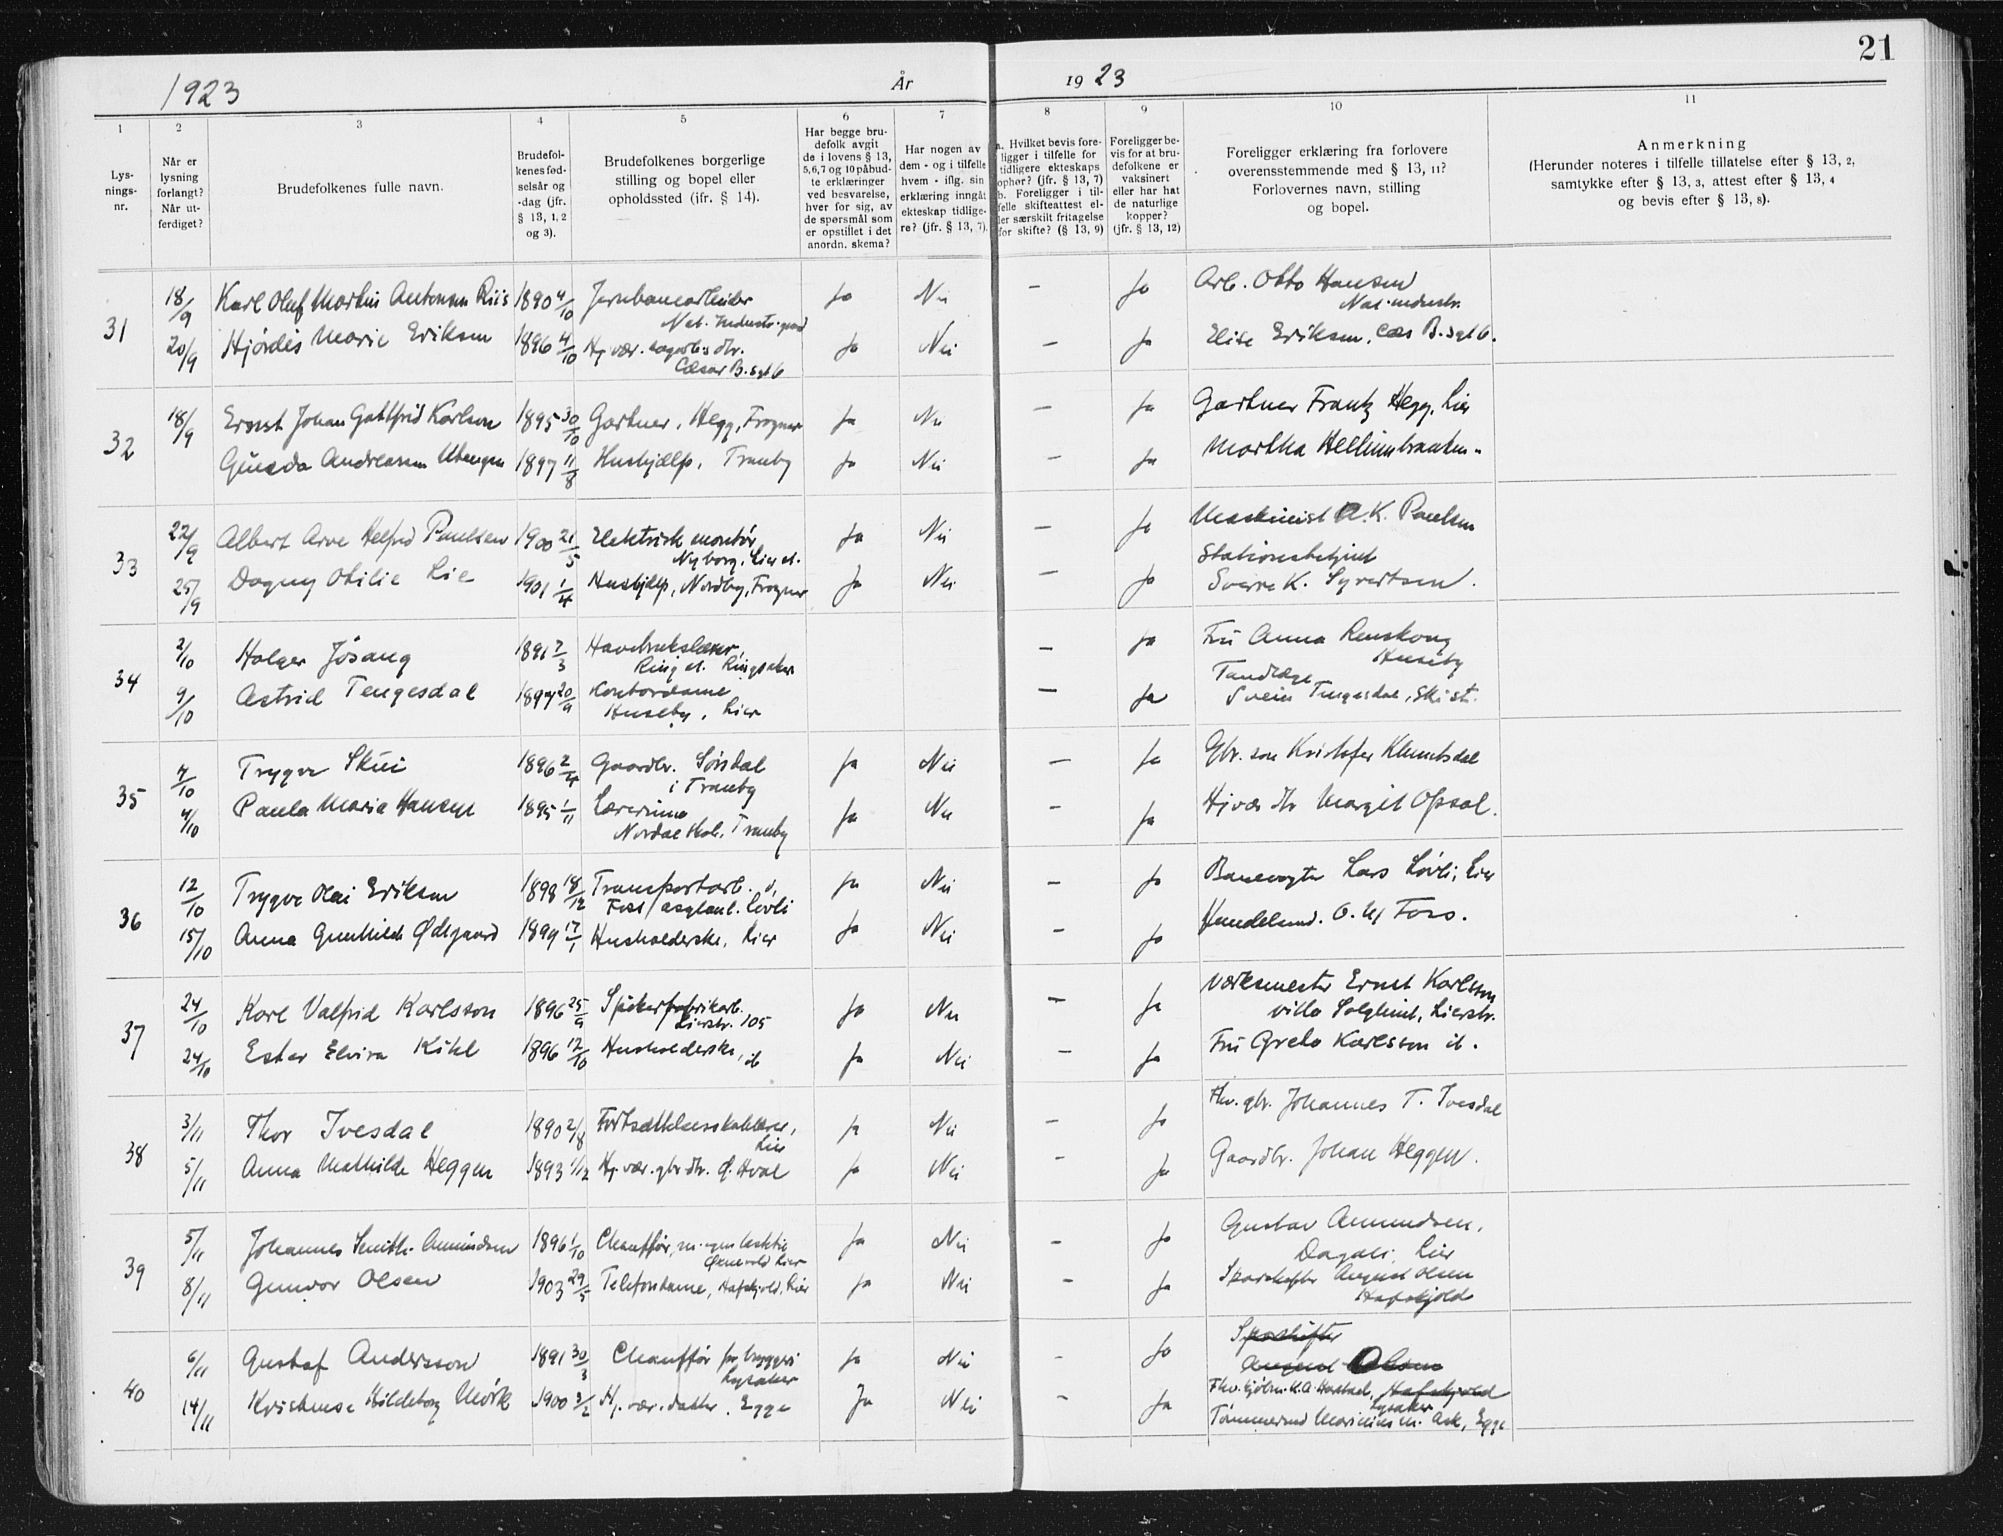 21
1923
År
1923
1
2
3
4
5
6
7
8
9
10
11
Lys-
nings-
nr.
Når er
lysning
forlangt?
Når ut-
ferdiget?
Brudefolkenes fulle navn.
Brudefol-
kenes fød-
selsår og
-dag (jfr.
§ 13, 1, 2
og 3).
Brudefolkenes borgerlige
stilling og bopel eller
opholdssted (jfr. § 14).
Har begge bru-
defolk avgit
de i lovens § 13,
5, 6, 7 og 10 påbud-
te erklæringer
ved besvarelse,
hver for sig, av
de spørsmål som
er opstillet i det
anordn. skema?
Har nogen av
dem - og i tilfelle
hvem - iflg. sin
erklæring inngåt
ekteskap tidlige-
re? (jfr. § 13, 7).
a. Hvilket bevis fore-
ligger i tilfelle for
tidligere ekteskaps
ophør? (jfr. § 13, 7)
b. Foreligger i til-
felle skifteattest el-
ler særskilt fritagelse
for skifte? (§ 13, 9)
Foreligger be-
vis for at bru-
defolkene er
vaksinert
eller har hat
de naturlige
kopper?
(jfr. § 13, 12)
Foreligger erklæring fra forlovere
overensstemmende med § 13, 11?
Forlovernes navn, stilling
og bopel.
Anmerkning
(Herunder noteres i tilfelle tillatelse efter § 13, 2,
samtykke efter § 13, 3, attest efter § 13, 4
og bevis efter § 13, 8).
31
18/9 Karl Oluf Martin Antonsen Riis 1890 4/10 Jernbanearbeider Ja Nei — Ja Arb. Otto Hansen
Nat. industr.
20/9 Hjørdis Marie Eriksen 1896 4/10 Hj. vær. Ja Nei — Ja Elise Eriksen, Cæs B. gt 6.
Cæsar B. gt 6
32
18/9 Ernst Johan Gottfrid Karlson 1895 30/10 Gartner, Hegg, Frogner Ja Nei — Ja Gartner Frantz Hegg, Lier
Andreasen 1897 11/8 Hushjælp, Tranby Ja Nei — Ja Martha
33
22/9 Albert Arve Helfred Paulsen 1900 21/5 Elektrisk montør Ja Nei — Ja Maskinist A. K. Paulsen
Nyborg, Lier st.
Stationsbetjent
25/9 Dagny Otilie Lie 1901 1/4 Hushjælp, Nordby, Frogner Ja Nei — Ja Sverre K. Syvertsen.
34
2/10 Holger Jösang 1891 7/3 Havebrukslærer, — Ja Fru Anna Renskoug
Ring st. Ringsaker Huseby
Tandlæge
9/10 Astrid Tengesdal 1897 20/9 Kontordame — Ja Svein Tengesdal, Ski st.
Huseby, Lier
35
4/10 Trygve Skui 1896 2/4 Gaardbr. Sørsdal Ja Nei — Ja Gbr. søn Kristofer
i Tranby
4/10 Paula Marie Hansen 1895 1/11 Lærerinne Ja Nei — Ja Hj vær dtr Margit Opsal.
Nordal skole, Tranby
36
12/10 Trygve Olai Eriksen 1898 18/12 Transportarb. Ja Nei — Ja Banevogter Lars Løvli, Lier
Løvli
15/10 Anna Gunhilde Ødegaard 1899 17/1 Husholderske, Lier Ja Nei — Ja Handelsmd. O. Foss.
37
24/10 Karl Valfrid Karlsson 1896 25/9 Spikerfabrikarb. Ja Nei — Ja Værksmester Ernst Karlsson
Lierstr. 105 villa Solglimt, Lierstr.
24/10 Ester Elvira Kihl 1896 12/10 Husholderske, it Ja Nei — Ja Fru Greta Karlsson it.
38
3/11 Thor Ivesdal 1890 2/8 Fortsættelsesskolelærer, Ja Nei — Ja Fhv. gbr. Johannes T. Ivesdal
Lier
5/11 Anna Mathilde Heggen 1893 1/12 Hj. vær. gbr. dtr. Ø. Hval Ja Nei — Ja Gaardbr. Johan Heggen.
39
5/11 Johannes Smith-Amundsen 1896 1/10 Chauffør, Ja Nei — Ja Gustav Amundsen,
Lier Dagali, Lier
8/11 Gunvor Olsen 1903 29/5 Telefondame, Hafskjold, Lier Ja Nei — Ja Sporskifter August Olsen
Hafskjold
40
6/11 Gustaf Andersson 1891 30/3 Chauffør for bryggeri Ja Nei — Ja Sporskifter
Lysaker August Olsen
Hafskjold
14/11 Kristense Hildeborg Mörk 1900 3/2 Hj. vær. datter. Egge Ja Nei — Ja Lysaker
Tømmermd M. Ask, Egge